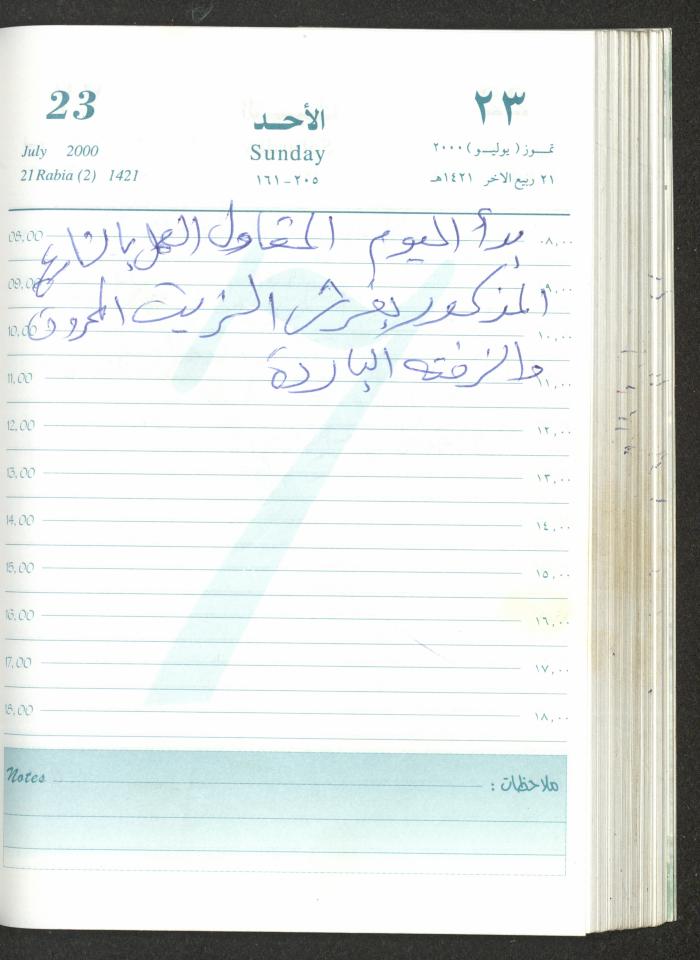 23 الأحد ٢٣
July 2000 Sunday تمـوز ( يوليـو ) ٢٠٠٠
21 Rabia (2) 1421 ١٦١-٢٠٥ ٢١ ربيع الاخر ١٤٢١هـ
08,00 بدأ اليوم المقاول العمل بالشارع ٠٨,٠٠
09,00 المذكور بفرش الزيت المحروق ٠٩,٠٠
10,00 ١٠,٠٠
والزفته الباردة
11,00 ١١,٠٠
12,00 ١٢,٠٠
13,00 ١٣,٠٠
14,00 ١٤,٠٠
15,00 ١٥,٠٠
16,00 ١٦,٠٠
17,00 ١٧,٠٠
18,00 ١٨,٠٠
Notes ملاحظات :